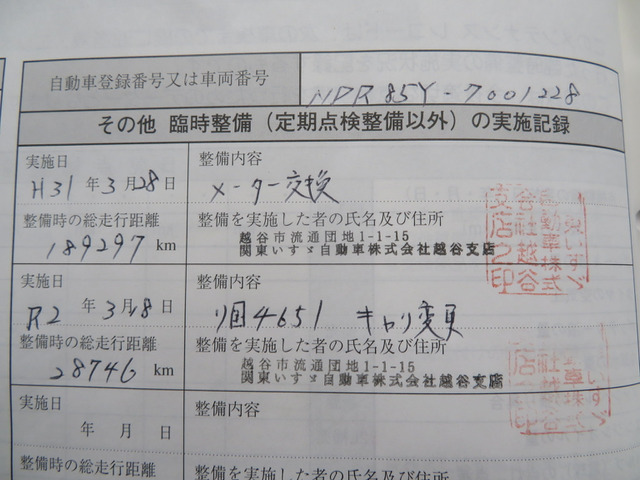 自動車登録番号又は車両番号 NPR85Y-7001228
その他 臨時整備（定期点検整備以外）の実施記録
実施日 整備内容
H31 年 3 月 28 日 メーター交換
整備時の総走行距離 整備を実施した者の氏名及び住所
189297 km 越谷市流通団地1-1-15
関東いすゞ自動車株式会社越谷支店
実施日 整備内容
R2 年 3 月 18 日 リ国4651 キャリ変更
整備時の総走行距離 整備を実施した者の氏名及び住所
28746 km 越谷市流通団地1-1-15
関東いすゞ自動車株式会社越谷支店
実施日 整備内容
年 月 日
整備時の総走行距離 整備を実施した者の氏名及び住所